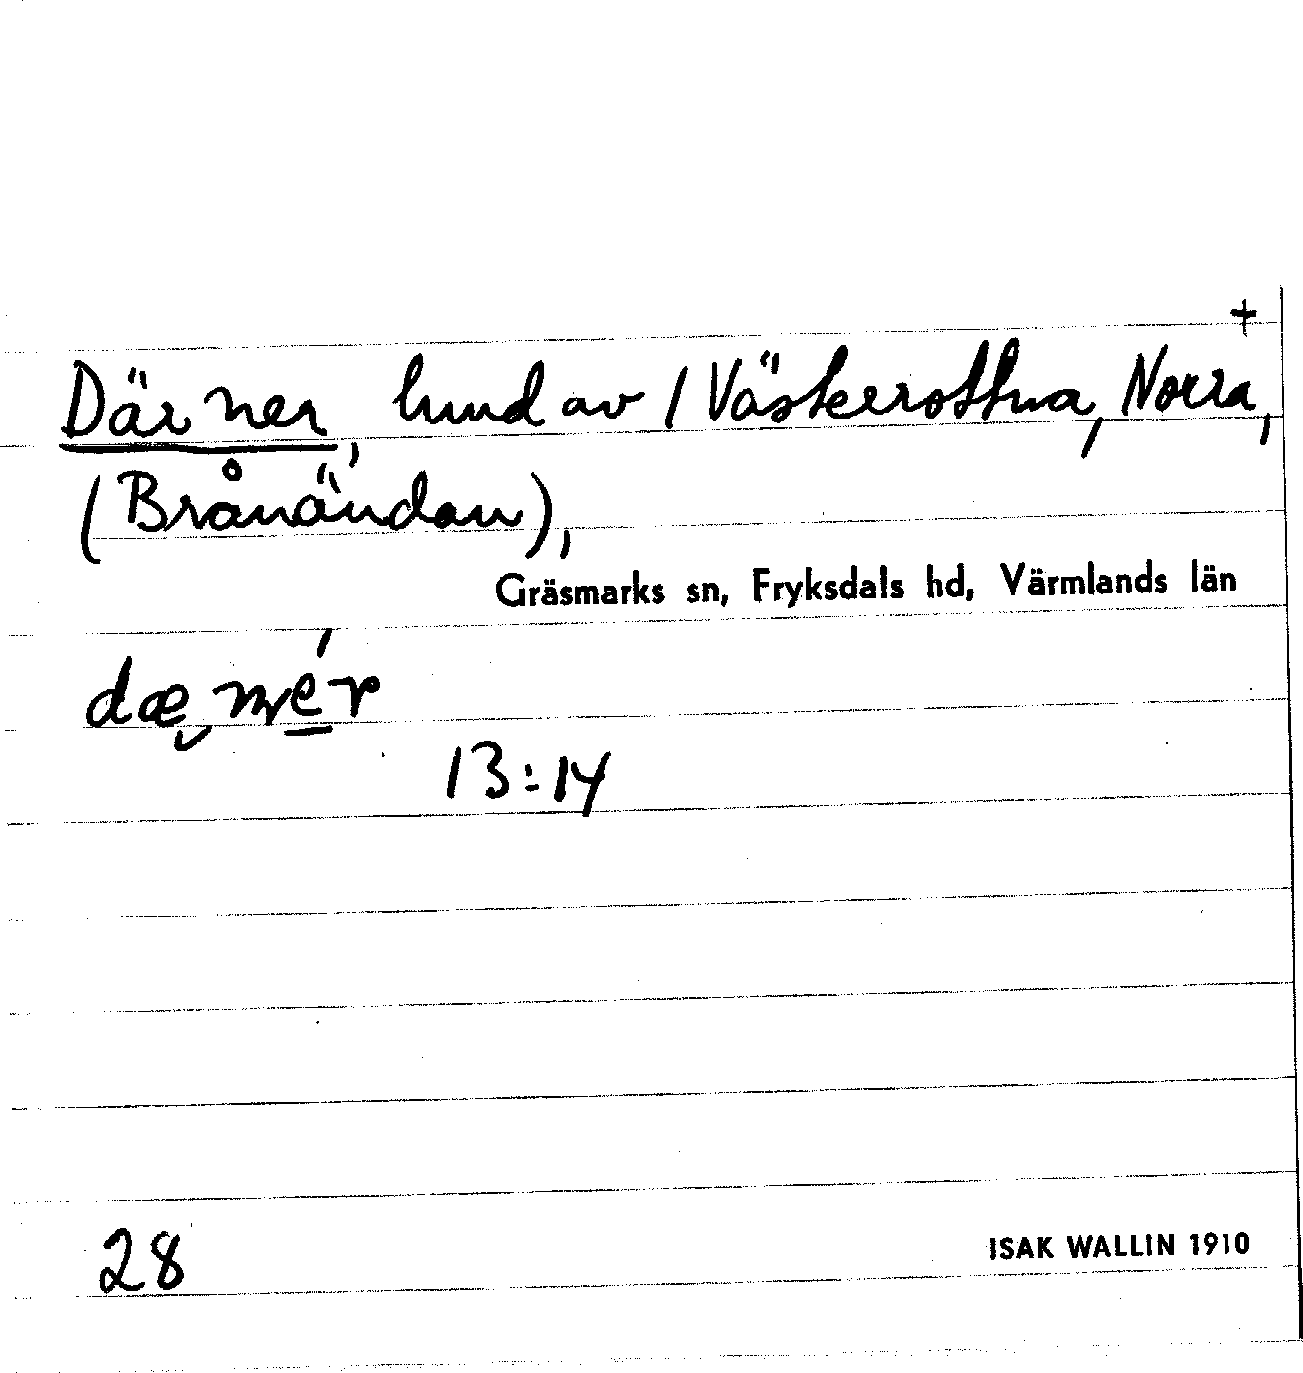 +
Där ner, hmd av / Västerrottna, Norra,
(Brånändan),
Gräsmarks sn, Fryksdals hd, Värmlands län
13:14
28
ISAK WALLIN 1910